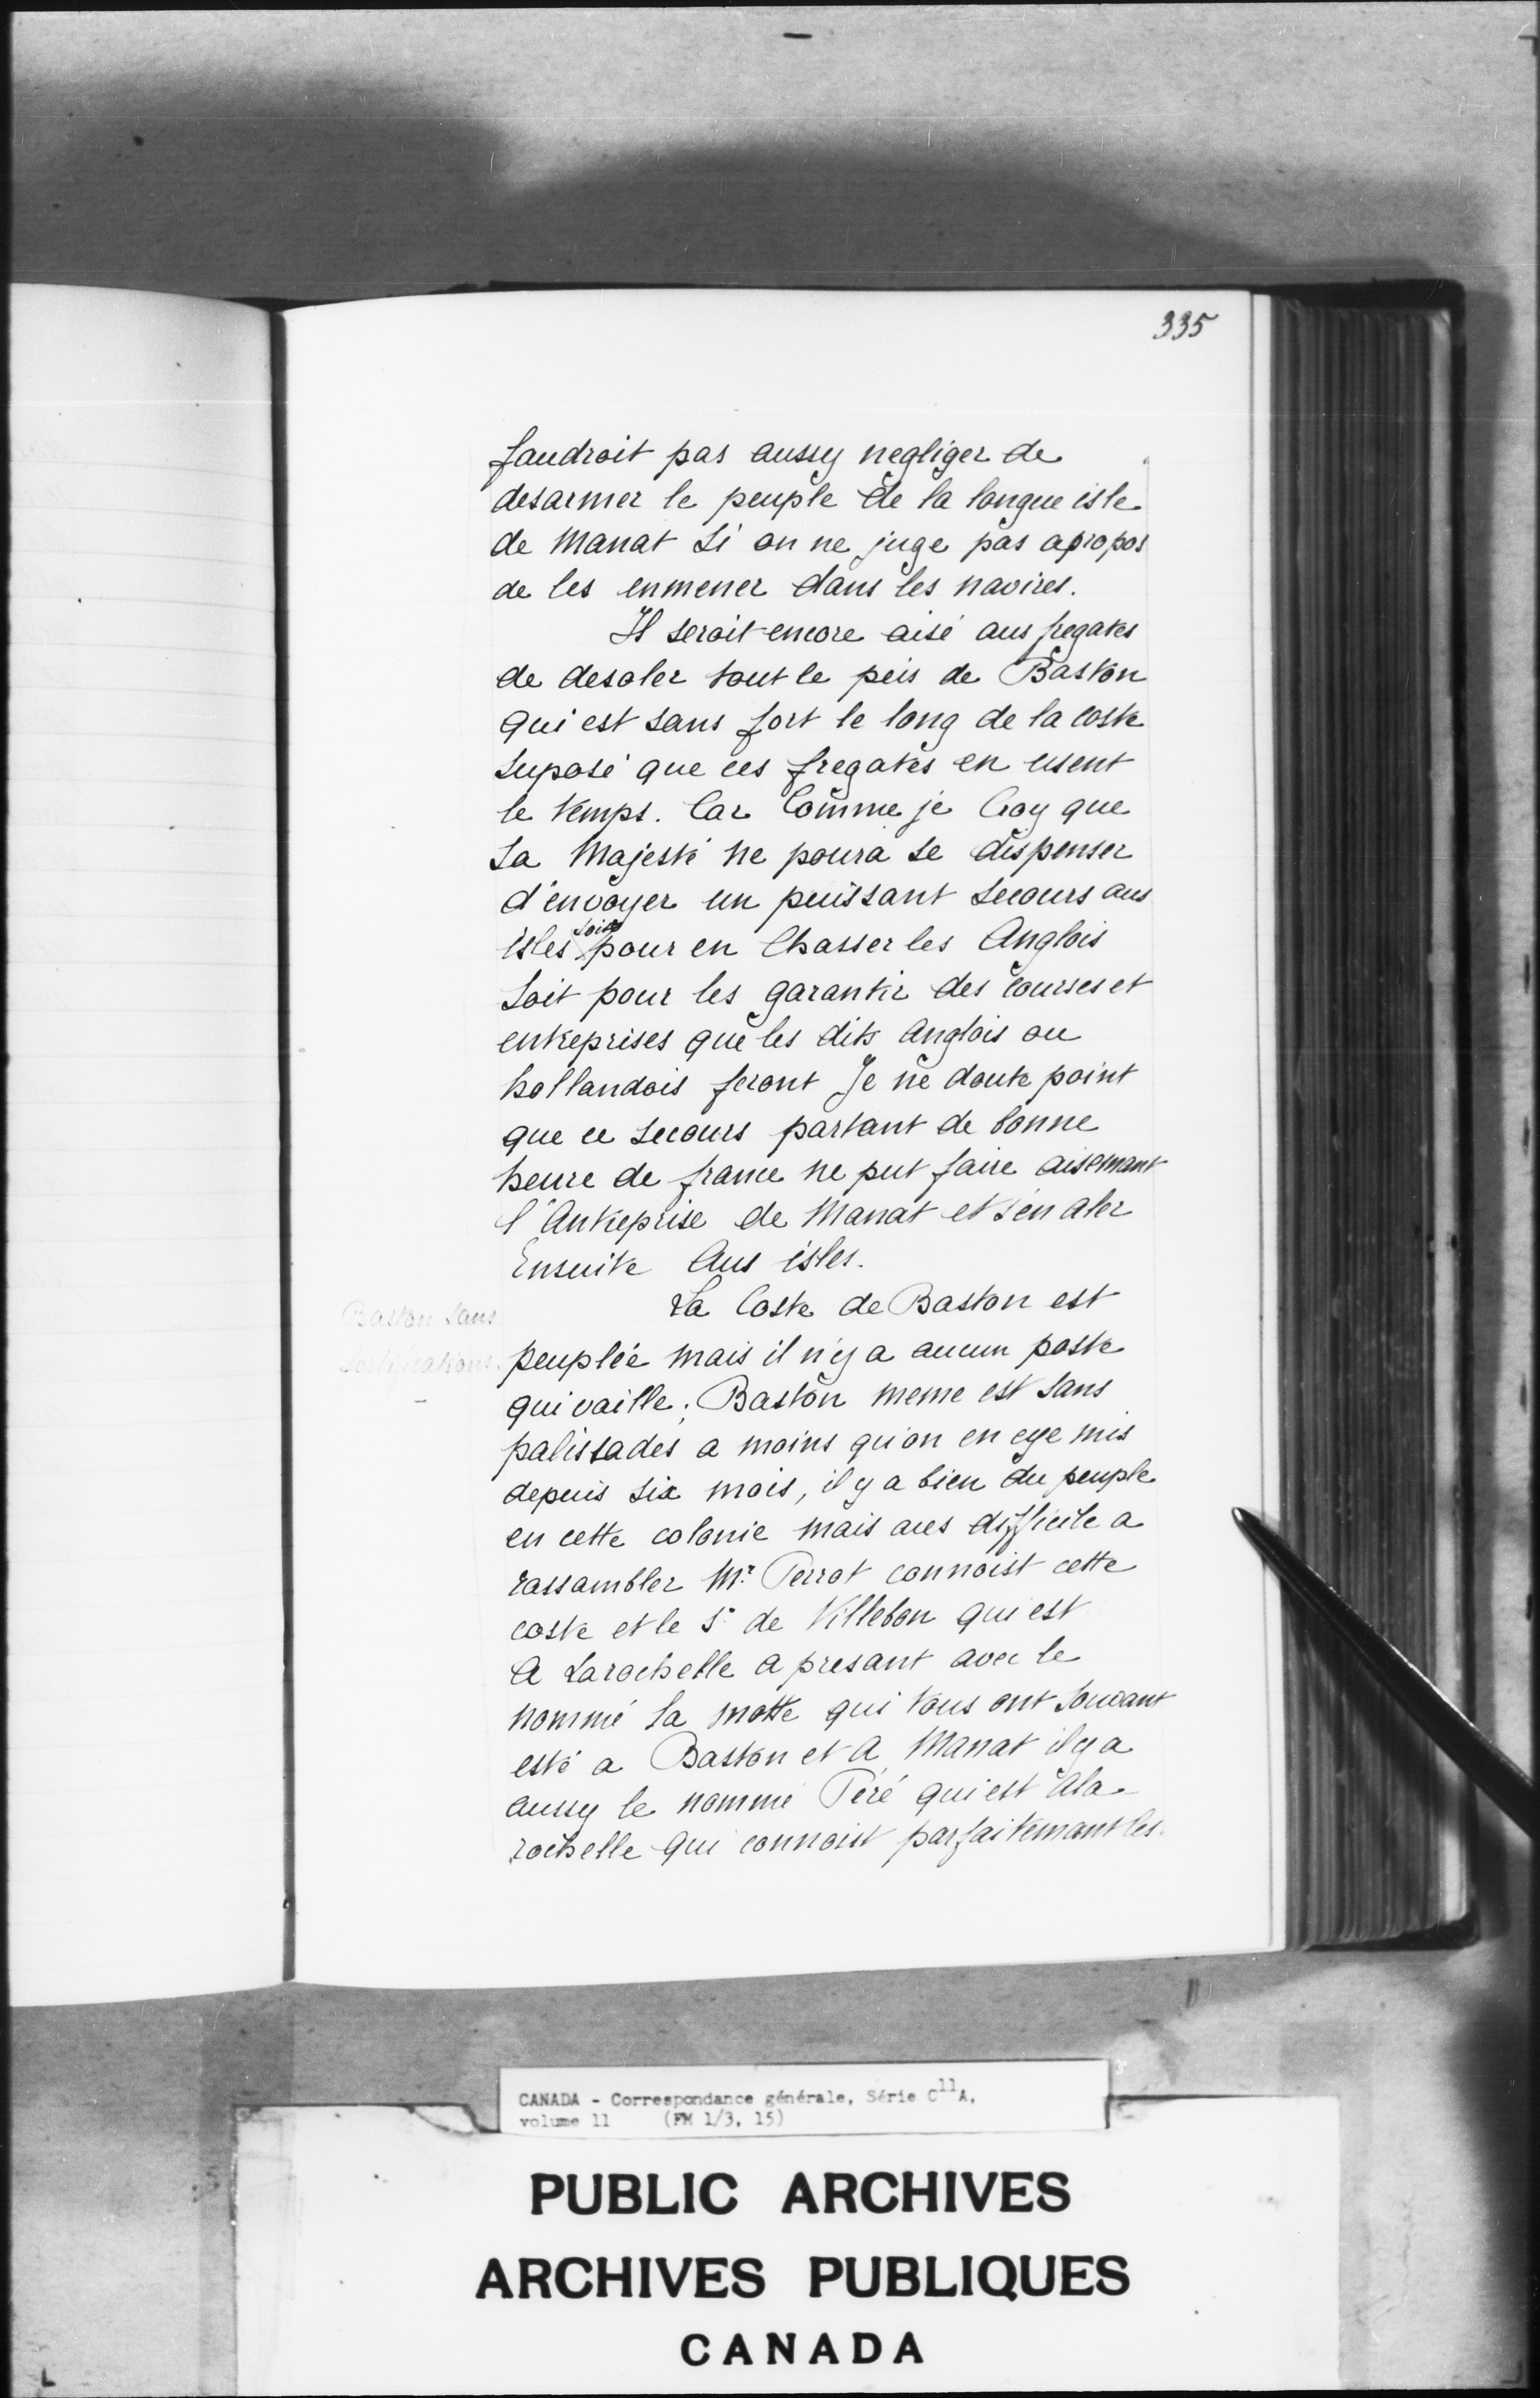 335
faudroit pas aussy negliger de
desarmer le peuple de la longue isle
de Manat Si on ne juge pas apropos
de les enmener dans les navires.
Il seroit encore aisé aus fregates
de desoler tout le peis de Baston
qui est sans fort le long de la coste
suposé que ces fregates en eusent
le temps. Car Comme je Croy que
Sa Majesté ne poura se dispenser
d'envoyer un puissant secours aus
isles soit pour en Chasser les Anglois
Soit pour les garantir des courses et
entreprises que les dits Anglois ou
hollandois feront Je ne doute point
que ce secours partant de bonne
heure de france ne put faire aisemant
l'Antreprise de Manat et s'en aler
Ensuite Aus isles.
La Coste de Baston est
Baston sans
peuplée mais il n'y a aucun poste
fortifications.
qui vaille; Baston meme est sans
palissades a moins qu'on en eye mis
depuis six mois, il y a bien du peuple
en cette colonie mais aces difficile a
rassambler Mr. Perrot connoist cette
coste et le Sr. de Villebon qui est
A Larochelle a presant avec le
nommé la motte qui tous ont souvant
esté a Baston et A Manat il y a
aussy le nommé Peré qui est Ala
rochelle qui connoist parfaitemant les
CANADA - Correspondance générale, Série C11A,
volume 11 (FM 1/3, 15)
PUBLIC ARCHIVES
ARCHIVES PUBLIQUES
CANADA